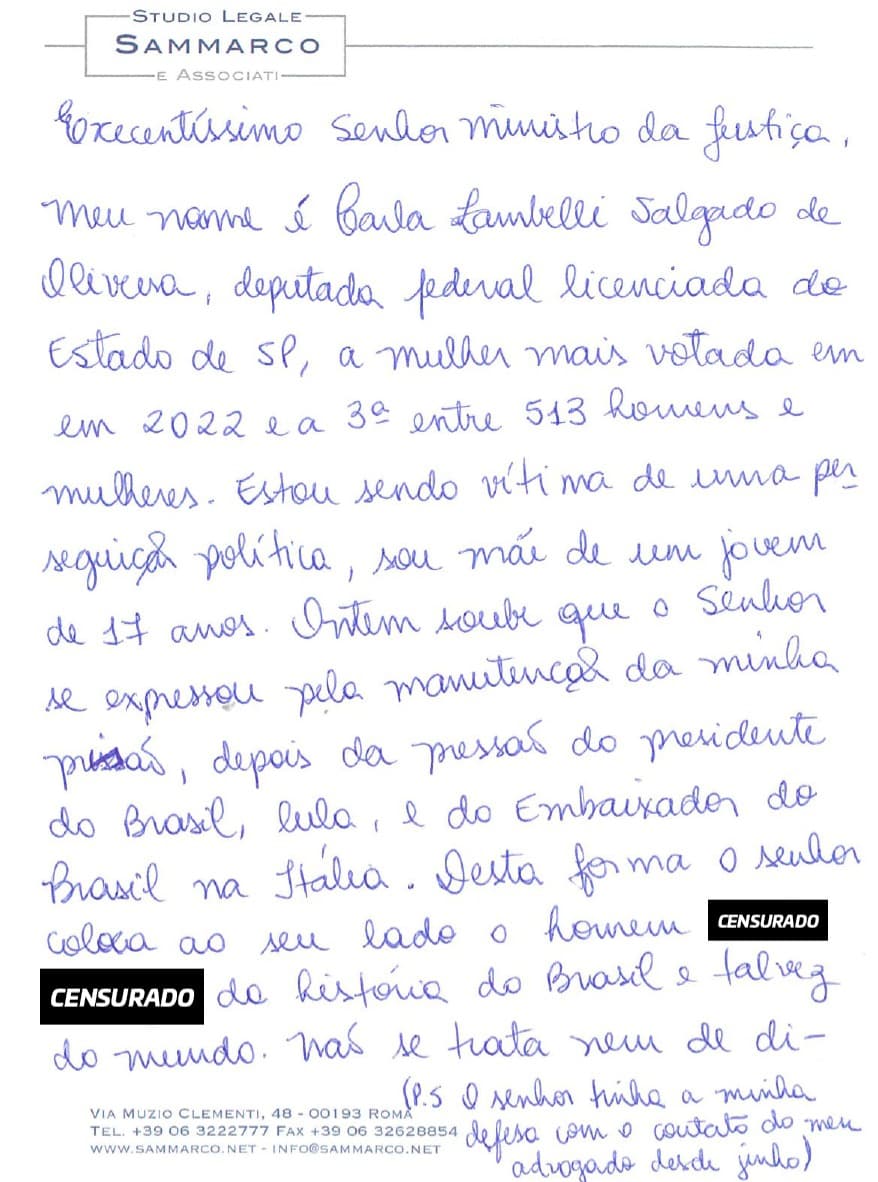 STUDIO LEGALE
SAMMARCO
E ASSOCIATI
Excecentíssimo Senhor ministro da justiça,
meu nome é Carla Zambelli Salgado de
Oliveira, deputada federal licenciada do
Estado de SP, a mulher mais votada em
em 2022 e a 3ª entre 513 homens e
mulheres. Estou sendo vítima de uma per
seguição política, sou mãe de um jovem
de 17 anos. Ontem soube que o Senhor
se expressou pela manutenção da minha
prisão, depois da pressão do presidente
do Brasil, lula, e do Embaixador do
Brasil na Itália. Desta forma o senhor
coloca ao seu lado o homem CENSURADO
CENSURADO da história do Brasil e talvez
do mundo. Não se trata nem de di-
(P.S O senhor tinha a minha
defesa com o contato do meu
advogado desde junho)
VIA MUZIO CLEMENTI, 48 - 00193 ROMA
TEL. +39 06 3222777 FAX +39 06 32628854
WWW.SAMMARCO.NET - INFO@SAMMARCO.NET